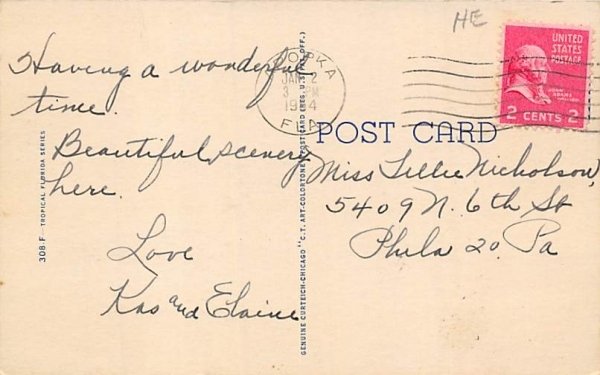 HE
UNITED
STATES
POSTAGE
JOHN
ADAMS
2 CENTS 2
OPKA
JAN 2
3 PM
FLA
POST CARD
Having a wonderful
time.
Beautiful scenery
here.
Love
Kas and Elaine
Miss Lillie Nicholson,
5409 N. 6th St
Phila 20. Pa
308 F — TROPICAL FLORIDA SERIES
GENUINE CURTEICH-CHICAGO "C.T. ART-COLORTONE" POST CARD (REG. U.S. PAT. OFF.)